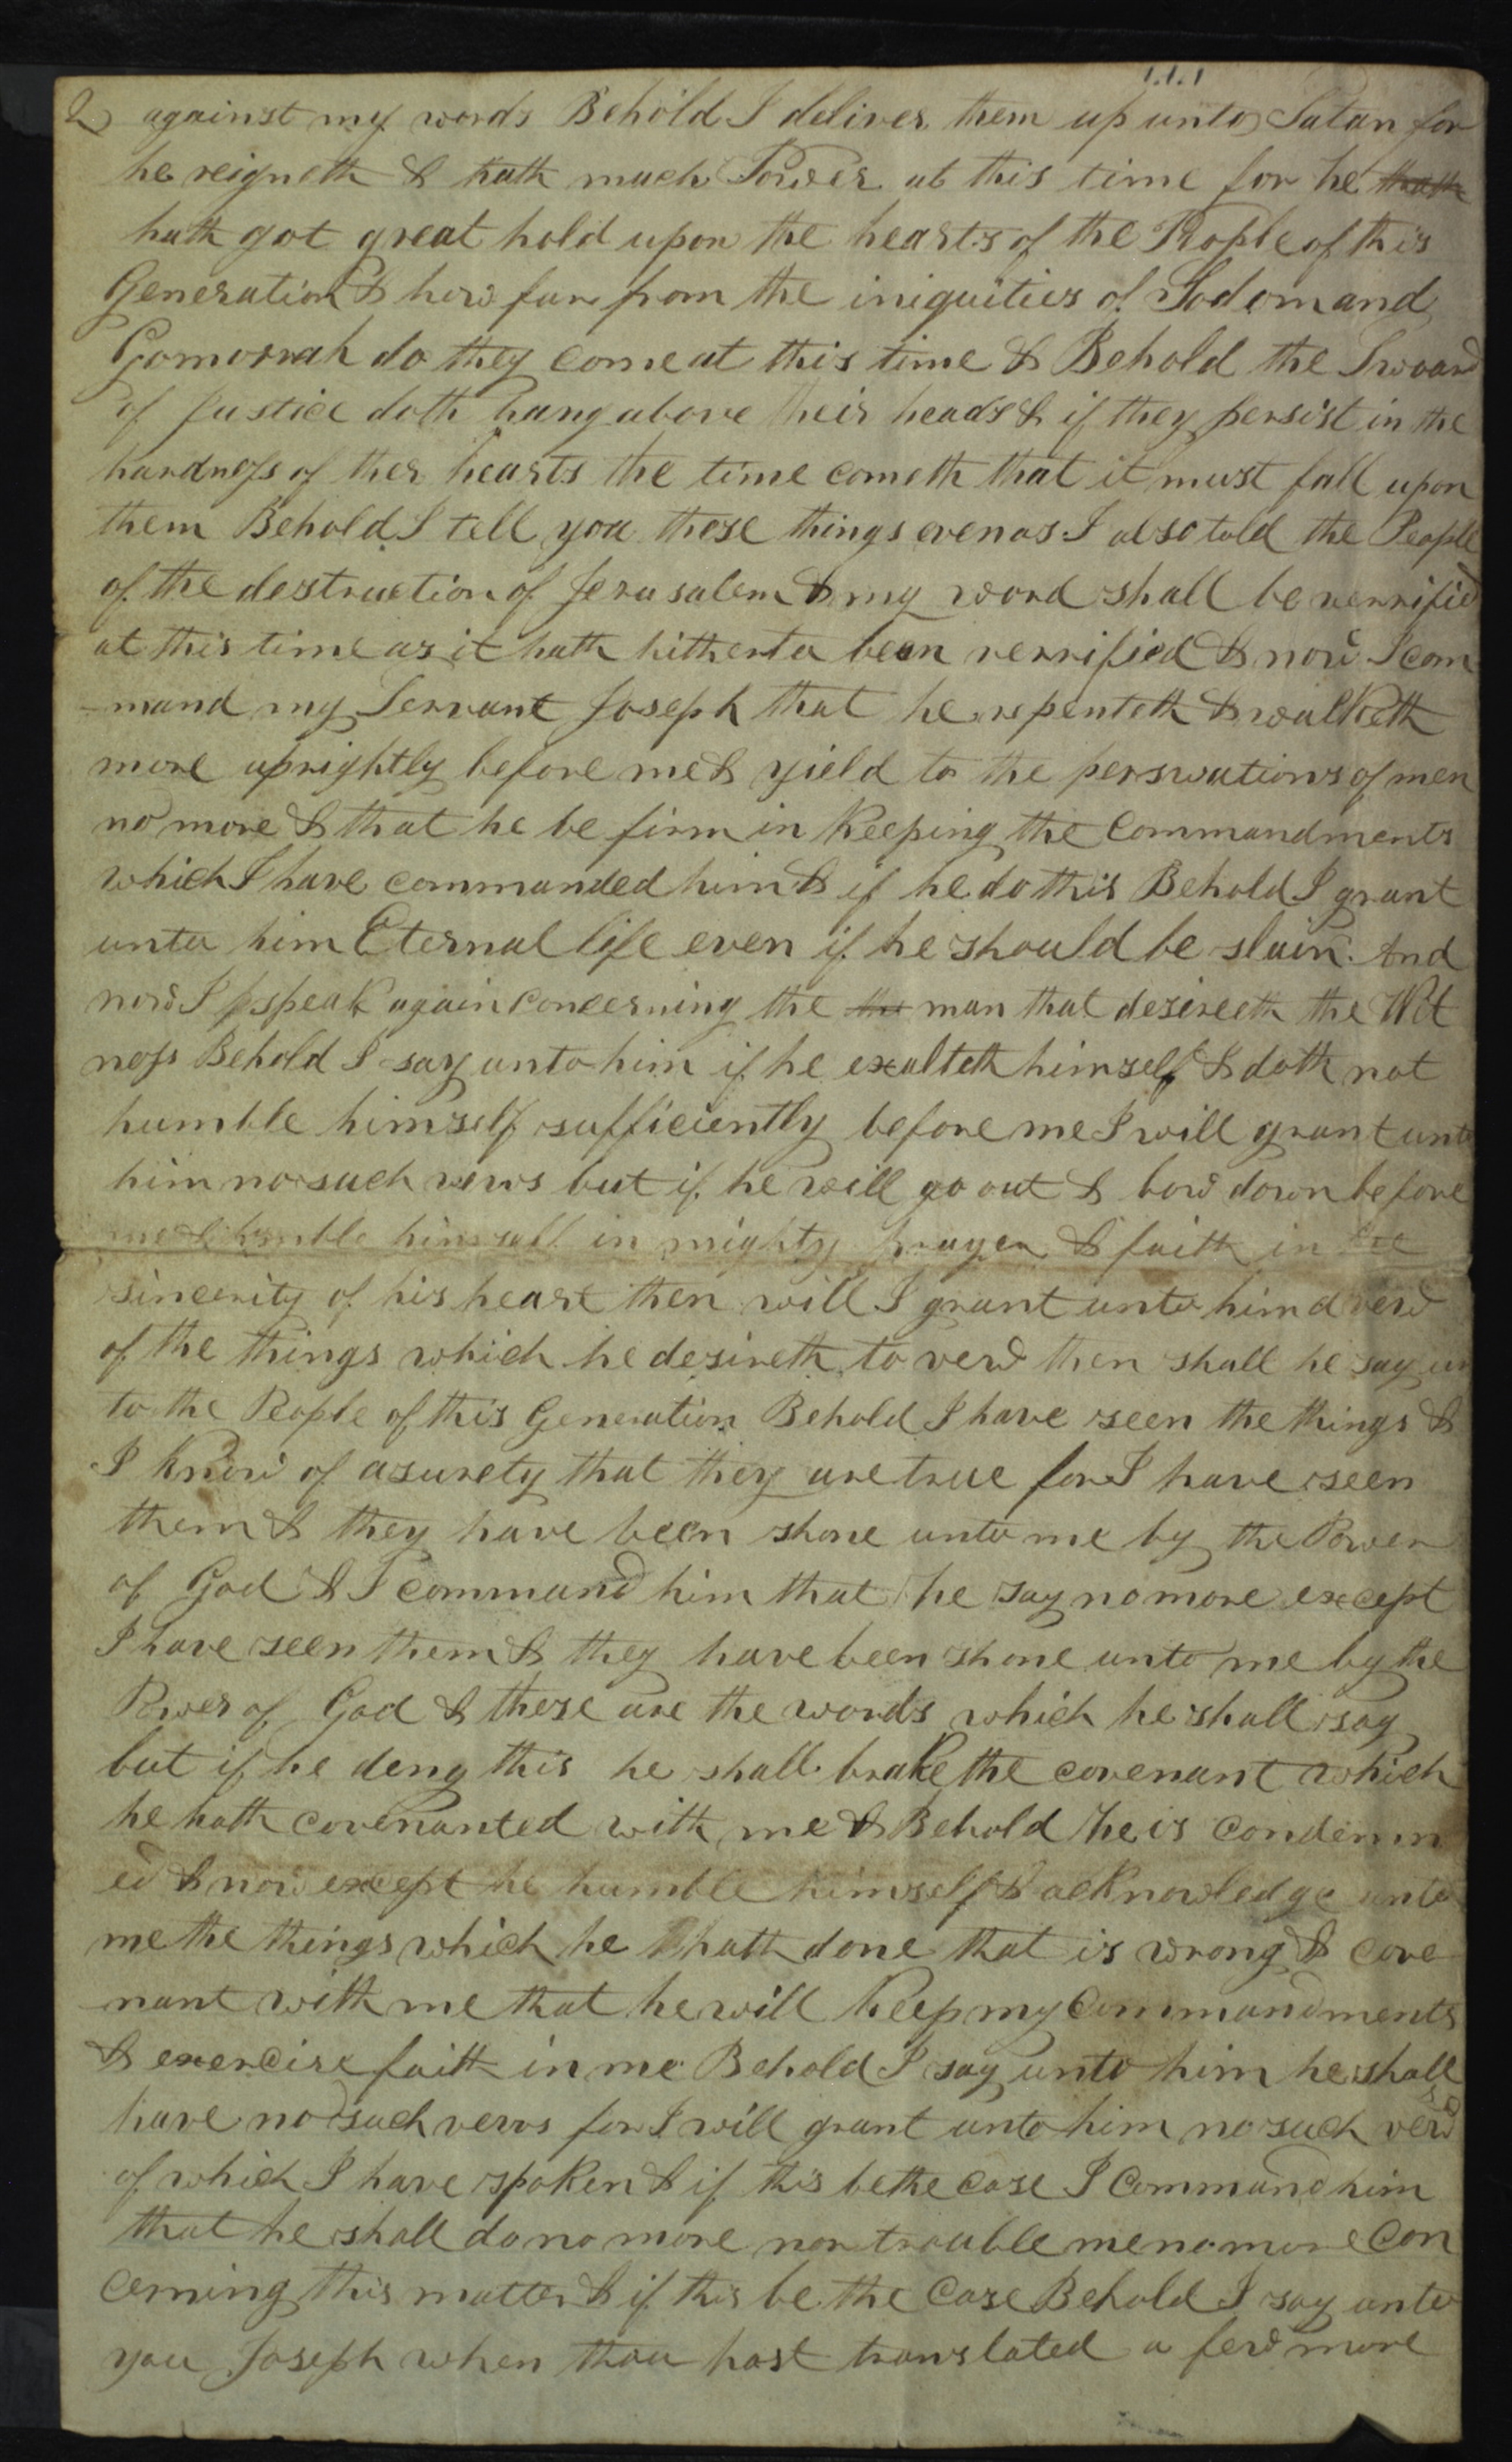 1.1.1
2 against my words Behold I deliver them up unto Satan for
he reigneth & hath much Power at this time for he thath
hath got great hold upon the hearts of the People of this
Generation & how far from the iniquities of Sodom and
Gomorrah do they come at this time & Behold the Sword
of Justice doth hang above their heads & if they persist in the
hardness of ther hearts the time cometh that it must fall upon
them Behold I tell you these things even as I also told the People
of the destruction of Jerusalem & my word shall be verrified
at this time as it hath hitherto been verrified & now I com
-mand my Servant Joseph that he repenteth & walketh
more uprightly before me & yield to the perswations of men
no more & that he be firm in keeping the commandments
which I have commanded him & if he do this Behold I grant
unto him Eternal life even if he should be slain. And
now I speak again concerning the the man that desireeth the Wit
ness Behold I say unto him if he exalteth himself & doth not
humble himself sufficiently before me I will grant unto
him no such vews but if he will go out & bow down before
me & humble himself in mighty prayer & faith in the
sincerity of his heart then will I grant unto him a vew
of the things which he desireth to vew then shall he say un
to the People of this Generation Behold I have seen the things &
I know of a surety that they are true for I have seen
them & they have been shone unto me by the Power
of God & I command him that he say no more except
I have seen them & they have been shone unto me by the
Power of God & these are the words which he shall say
but if he deny this he shall brake the covenant which
he hath covenanted with me & Behold he is condemn
ed & now except he humble himself & acknowledge unto
me the things which he hath done that is wrong & cove
-nant with me that he will keep my commandments
& exercise faith in me Behold I say unto him he shall
have no such vews for I will grant unto him no such vews
of which I have spoken & if this be the case I command him
that he shall do no more nor trouble me no more con
cerning this matter & if this be the case Behold I say unto
you Joseph when thou hast translated a few more